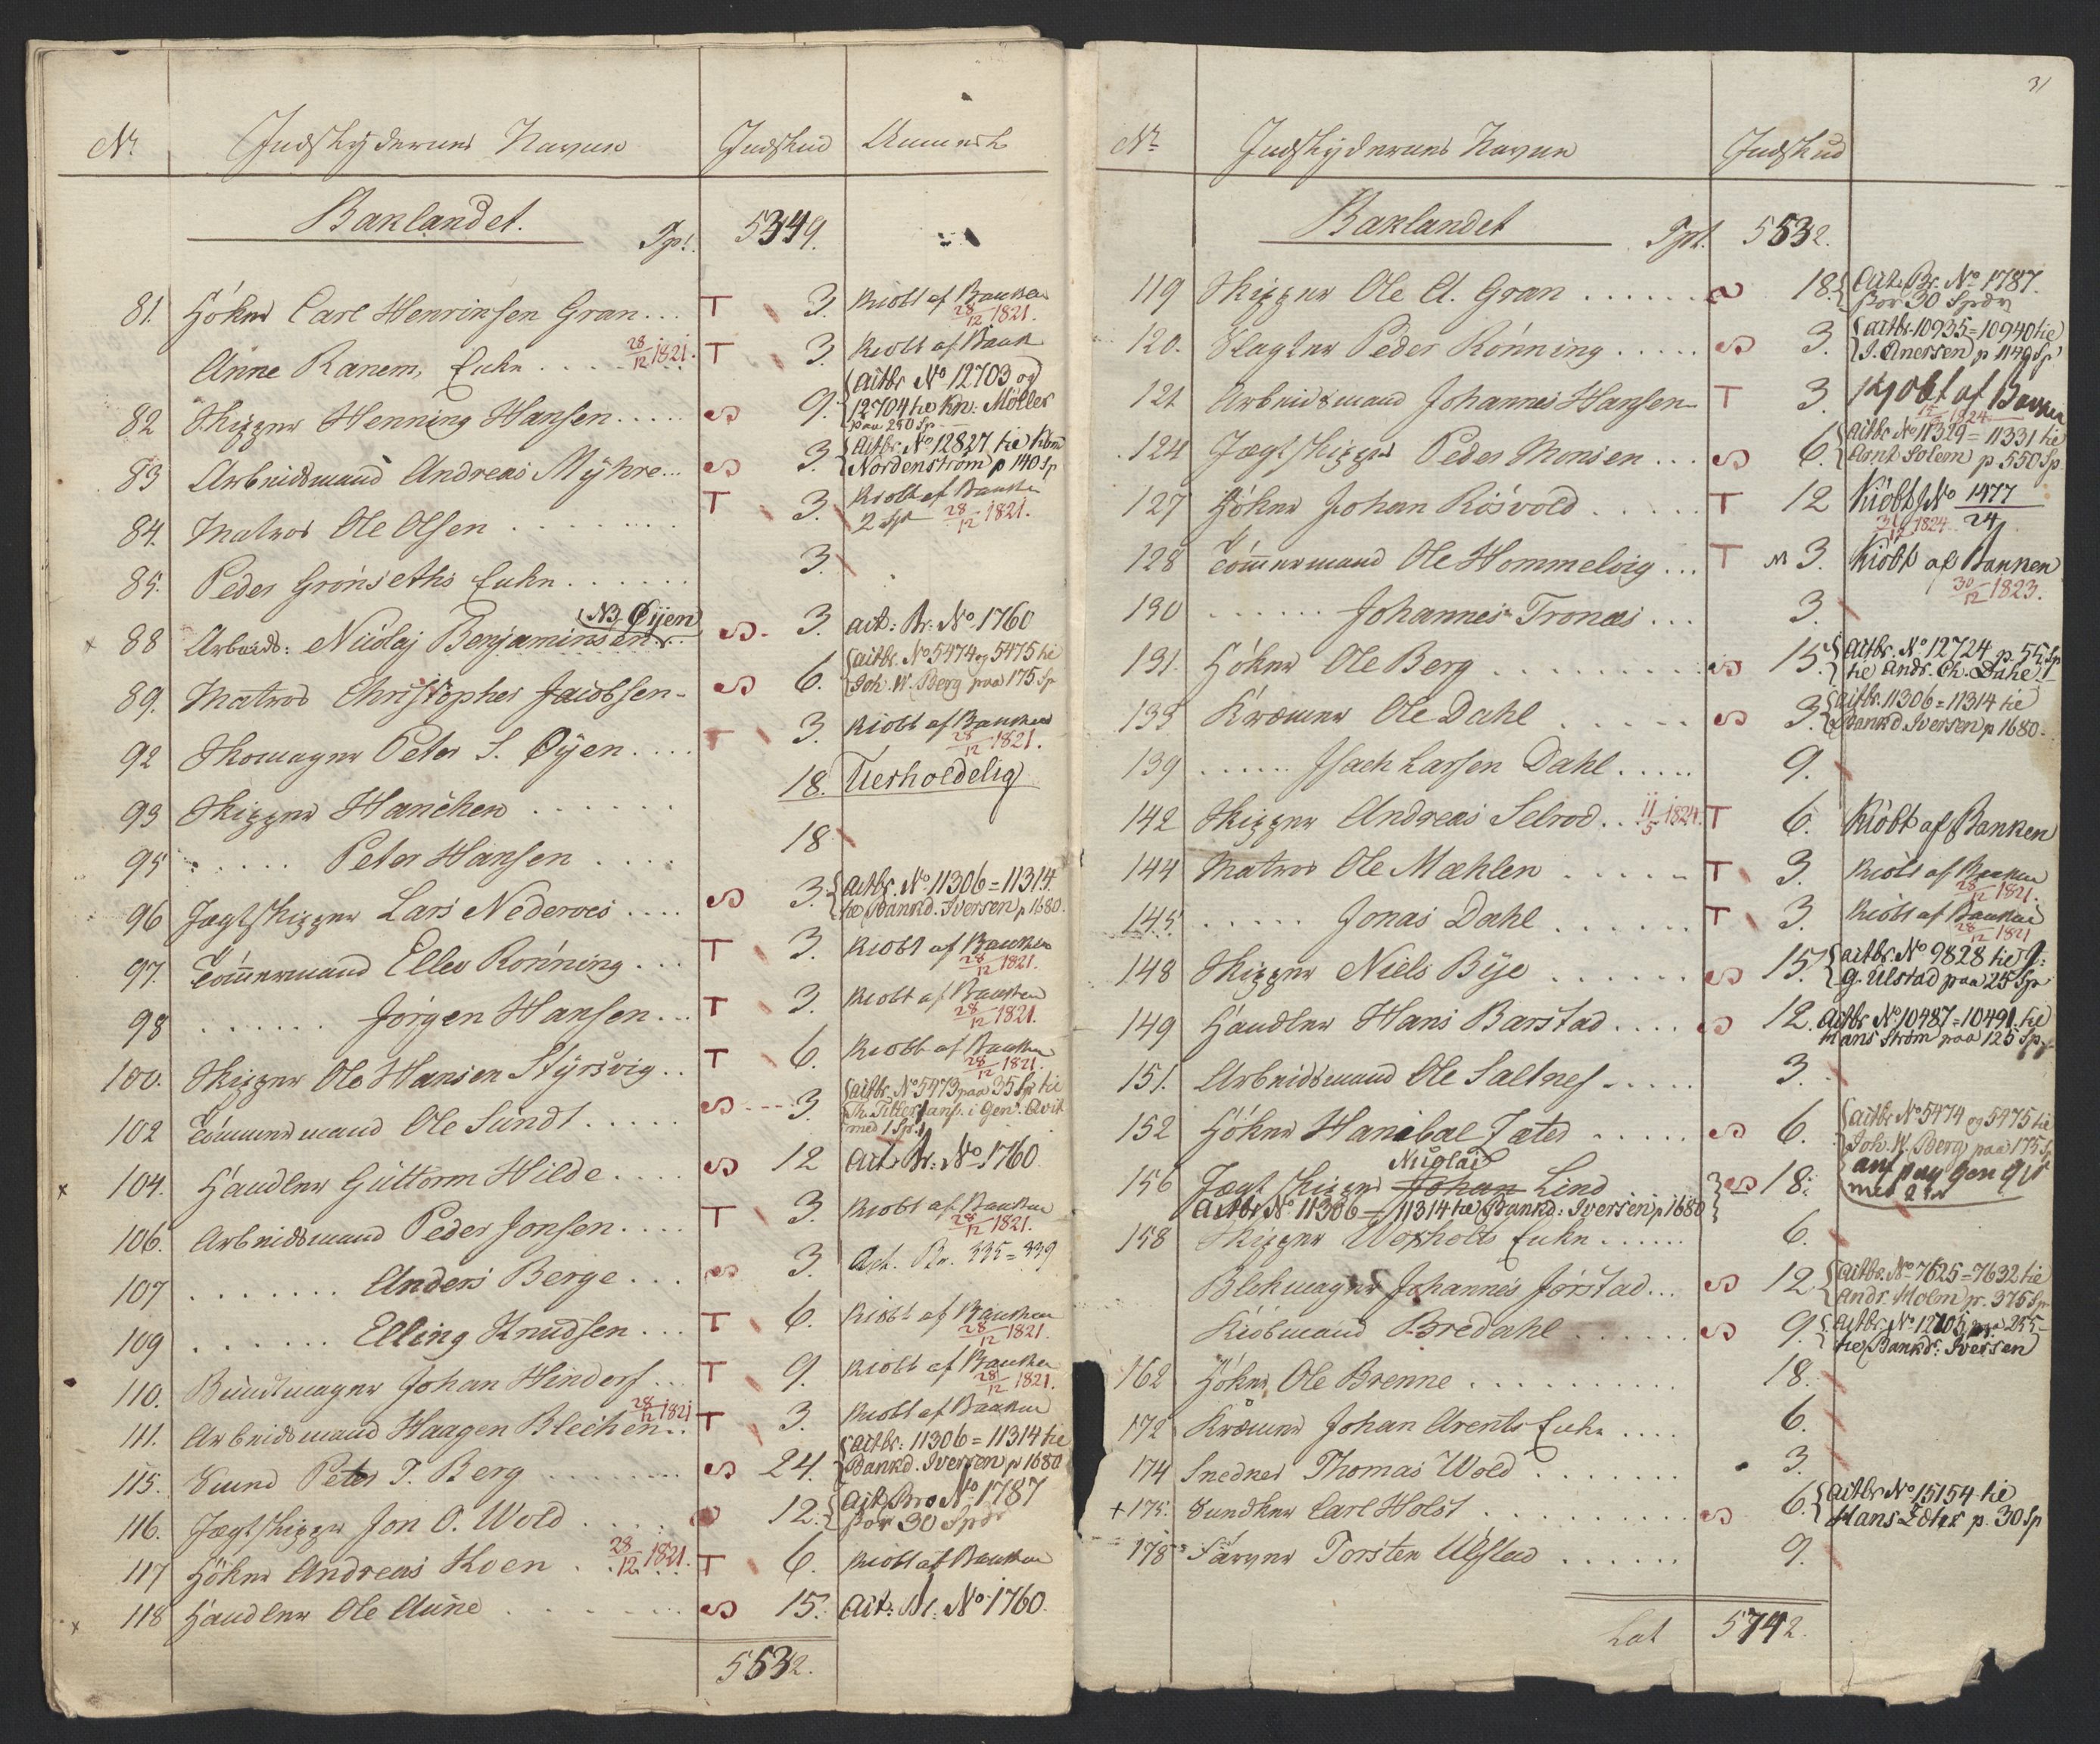 No. Indskydernes Navne Indskud Anmerk
Baklandet. Spd. 5349.
81. Høker Carl Henrinsen Gran... T 3. Kiøbt af Banken 28/12 1821.
Anne Ranem, Enke.... 28/12 1821. T 3. Kiøbt af Bank
82 Skipper Henning Hansen.... S 9. {actbr No 12703 og 12704 tie Kn: Møller paa 250 Sp
83 Arbeidsmand Andreas Myhre... S 3. {Actbr. No 12827 tie Kbm Nordenstrøm p 140 Sp
84. Matros Ole Olsen ........ T 3. Kiobt af Banken 2 Sp 28/12 1821.
85. Peder Grønseths Enke...... 3.
x 88 Arbeids: Nicolaj Benjaminsen (NB Øyen) S. 3. act: Br: No 1760
89. Matros Christopher Jacobsen - S 6. {actbr. No 5474 og 5475 tie Joh. W. Berg paa 175 Sp
92 Skomager Peter S. Øyen.... T 3. Kiobt af Banken 28/12 1821.
93 Skipper Hanchen ...... 18. Uerholdelig
95 ...... Peter Hansen .... 18
96 Jægtskipper Lars Nederoes .... S 3. {Actbr. No 11306 = 11314. tie Bankd. Iversen p 1680.
97. Tømmermand Ellev Rønning ... T 3. Kiobt af Banken 28/12 1821.
98 ...... Jørgen Hansen... T 3. Kiobt af Banken 28/12 1821.
100. Skipper Ole Hansen Styrsvig.. T 6. Kiobt af Banken 28/12 1821.
102 Tømmermand Ole Sundt..... S --- 3. {actbr. No 5473 paa 35 Sp tie Th. Tetter ans. i Gen. Qvit med 1 Sp.
x 104. Handler Guttorm Hilde.... S 12 Act: Br: No 1760
106. Arbeidsmand Peder Jonsen.... T 3. Kiobt af Banken 28/12 1821.
107 ....... Anders Berge... S 3. Act. Br. 335 = 339
109 ...... Elling Knudsen... T 6. Kiøbt af Banken 28/12 1821.
110. Bundtmager Johan Hindorf... T 9. Kiobt af Banken 28/12 1821.
111. Arbeidsmand Haagen Blechen.. 28/12 1821 T 3. Kiobt af Banken
115. Svend Peter T. Berg ........ S 24. {actbr: 11306 = 11314 tie Bankd. Iversen p 1680
116. Jægtskipper Jon O. Wold..... S 12. {Act Br. No 1787 for 30 Spdr
117 Høker Andreas Koen . 28/12 1821. T 6. Kiobt af Banken
x 118 Handler Ole Aune ....... S 15. Act: Br: No 1760.
5532.
31
No Indskydernes Navne Indskud
Baklandet Spd. 5532.
119 Skipper Ole A. Gran ...... S 18. {Act. Br. No 1787. for 30 Spdr
120. Slagter Peder Rønning ..... S 3. {actbr. 10935 = 10940 tie J. Anersen p 1149 Sp
121 Arbeidsmand Johannes Hansen - T 3. Kjøbt af Banken 15/ 1824
124 Jægtskipper Peder Monsen ... S 6. {actbr No 11329 = 11331 tie Arnt Solem p. 550 Sp.
127 Høker Johan Rösvold ..... T 12 Kiöbt No 1477 31/12 1824 24
128 Tømmermand Ole Hommelvig... T M 3. Kiöbt af Banken 30/12 1823.
130 ...... Johannes Tronæs ... 3.
131. Høker Ole Berg ......... S 15. {actbr. No 12724 p. 55 Sp tie Andr. Ch. Dahl.
133 Kræmer Ole Dahl ..... S 3. {actbr. 11306 = 11314 tie Bankd. Iversen p 1680.
139 ..... Isach Larsen Dahl..... 9.
142 Skipper Andreas Selrod.. 11/5 1824. T 6. Kiöbt af Banken
144 Matros Ole Mæhlen ..... T 3. Kiobt af Banken 28/12 1821.
145. ..... Jonas Dahl ...... T 3. Kiobt af Banken 28/12 1821
148 Skipper Niels Bye ...... S 15. {actbr. No 9828 tie J: G. Ulstad paa 25 Sp
149 Handler Hans Barstad.... S 12. Actbr No 10487 = 10491. tie Hans Strøm paa 125 Sp
151. Arbeidsmand Ole Saltnes ..... 3.
152 Høker Hanibal Sæter ..... S 6. {actbr No 5474 og 5475 tie Joh. W. Berg paa 175 Sp
156 Jægtskipper Johan Nicolai Lind S 18. {ans paa Gen Qvit med 2 Sp
Actbr No 11306 = 11314 tie Bankd: Iversen p 1680
158 Skipper Woxholts Enke...... 6.
Blekmager Johannes Jørstad... S 12. {Actbr. No 7625 = 7632 tie Andr. Holm p. 375 Sp
Kiøbmand Bredahl ...... S 9. {Actbr. No 12105 paa 255 - tie Bankdr: Iversen
162 Høker Ole Brenne .......... 18.
172 Kræmer Johan Arents Enke .... 6.
174 Snedker Thomas Wold ........ 3.
+ 175. Sundker Carl Holst ......... S 6. {Actbr No 15154 tie Hans Zeter p. 30 Sp
178 Farver Torsten Ulstad ...... 9.
Lat 5742.